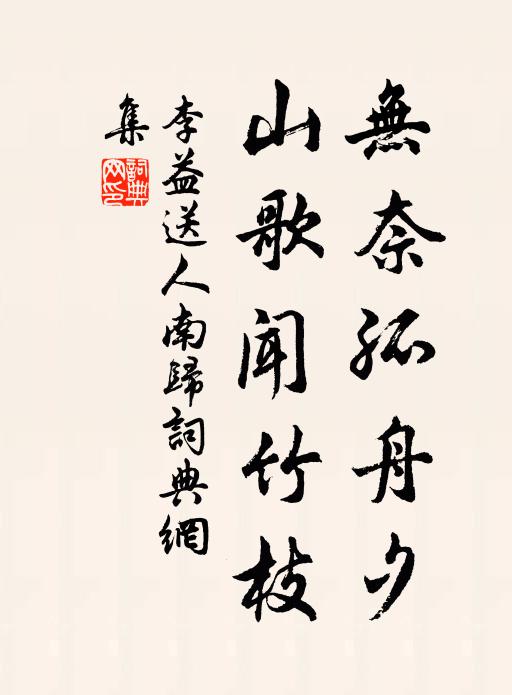 無奈孤舟夕
山歌聞竹枝
李益送人南歸詞典網
集
詞典
网印